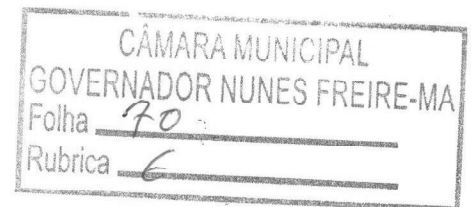 CÂMARA MUNICIPAL
GOVERNADOR NUNES FREIRE-MA
Folha 70
Rubrica